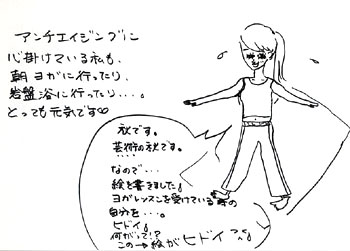 アンチエイジングに
心掛けている私も、
朝ヨガに行ったり、
岩盤浴に行ったり…。
とっても元気です♡
秋です。
芸術の秋です。
なので…
絵を書きました!
ヨガレッスンを受けている時の
自分を…。
ヒドイ!
何がって!?
この→絵がヒドイ?!